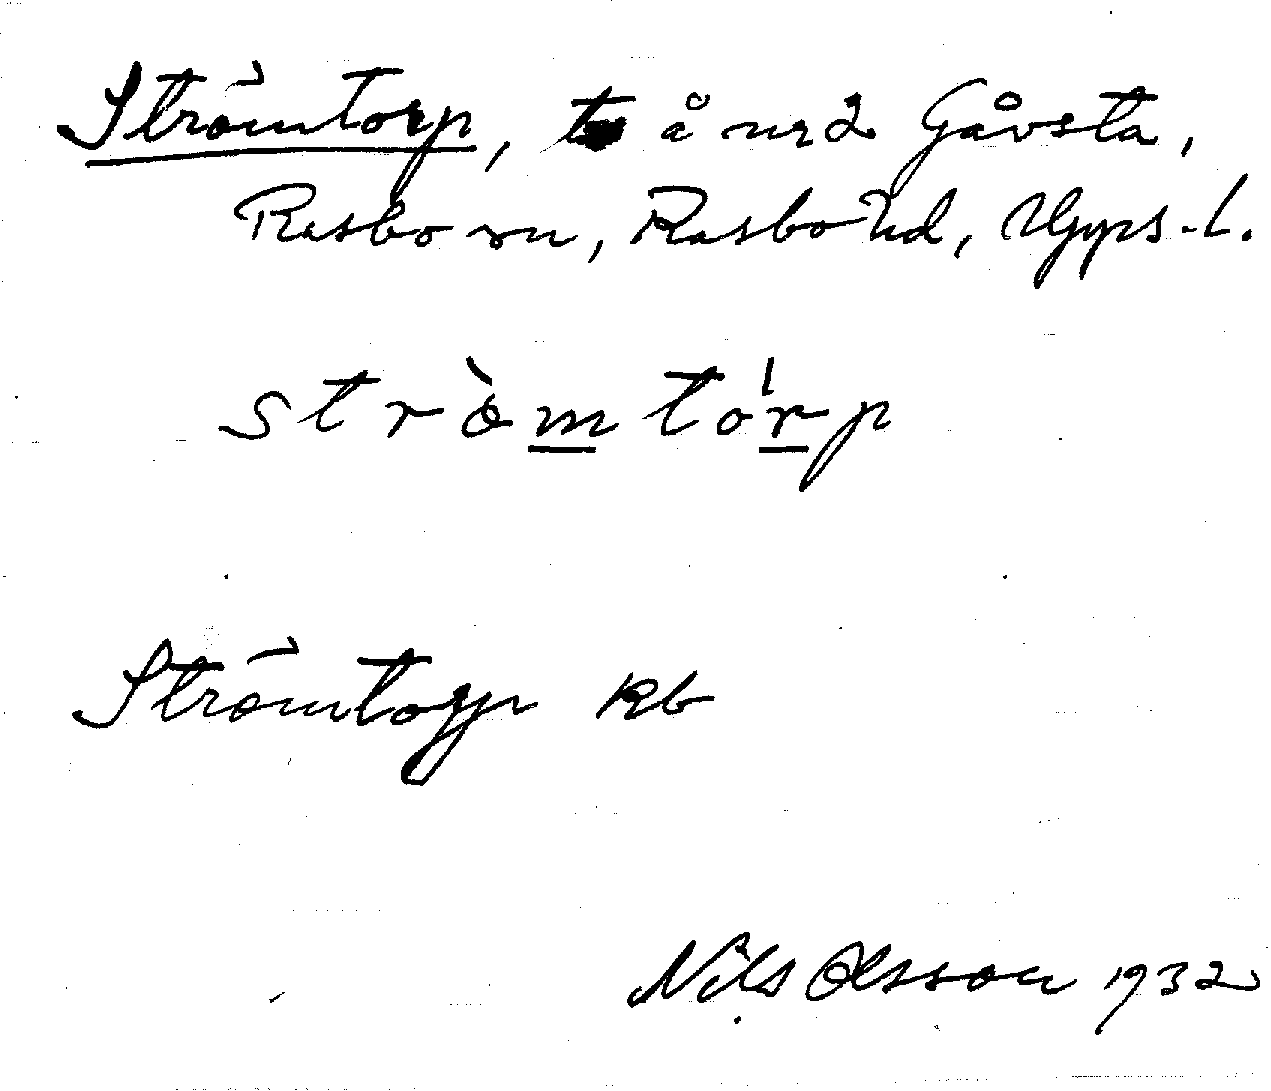 Strömtorp, t å nr 2 Gåvsta,
Rasbo sn, Rasbo hd, Upps. l.
strö̀mtórp
Strömtorp kb
Nils Olsson 1932